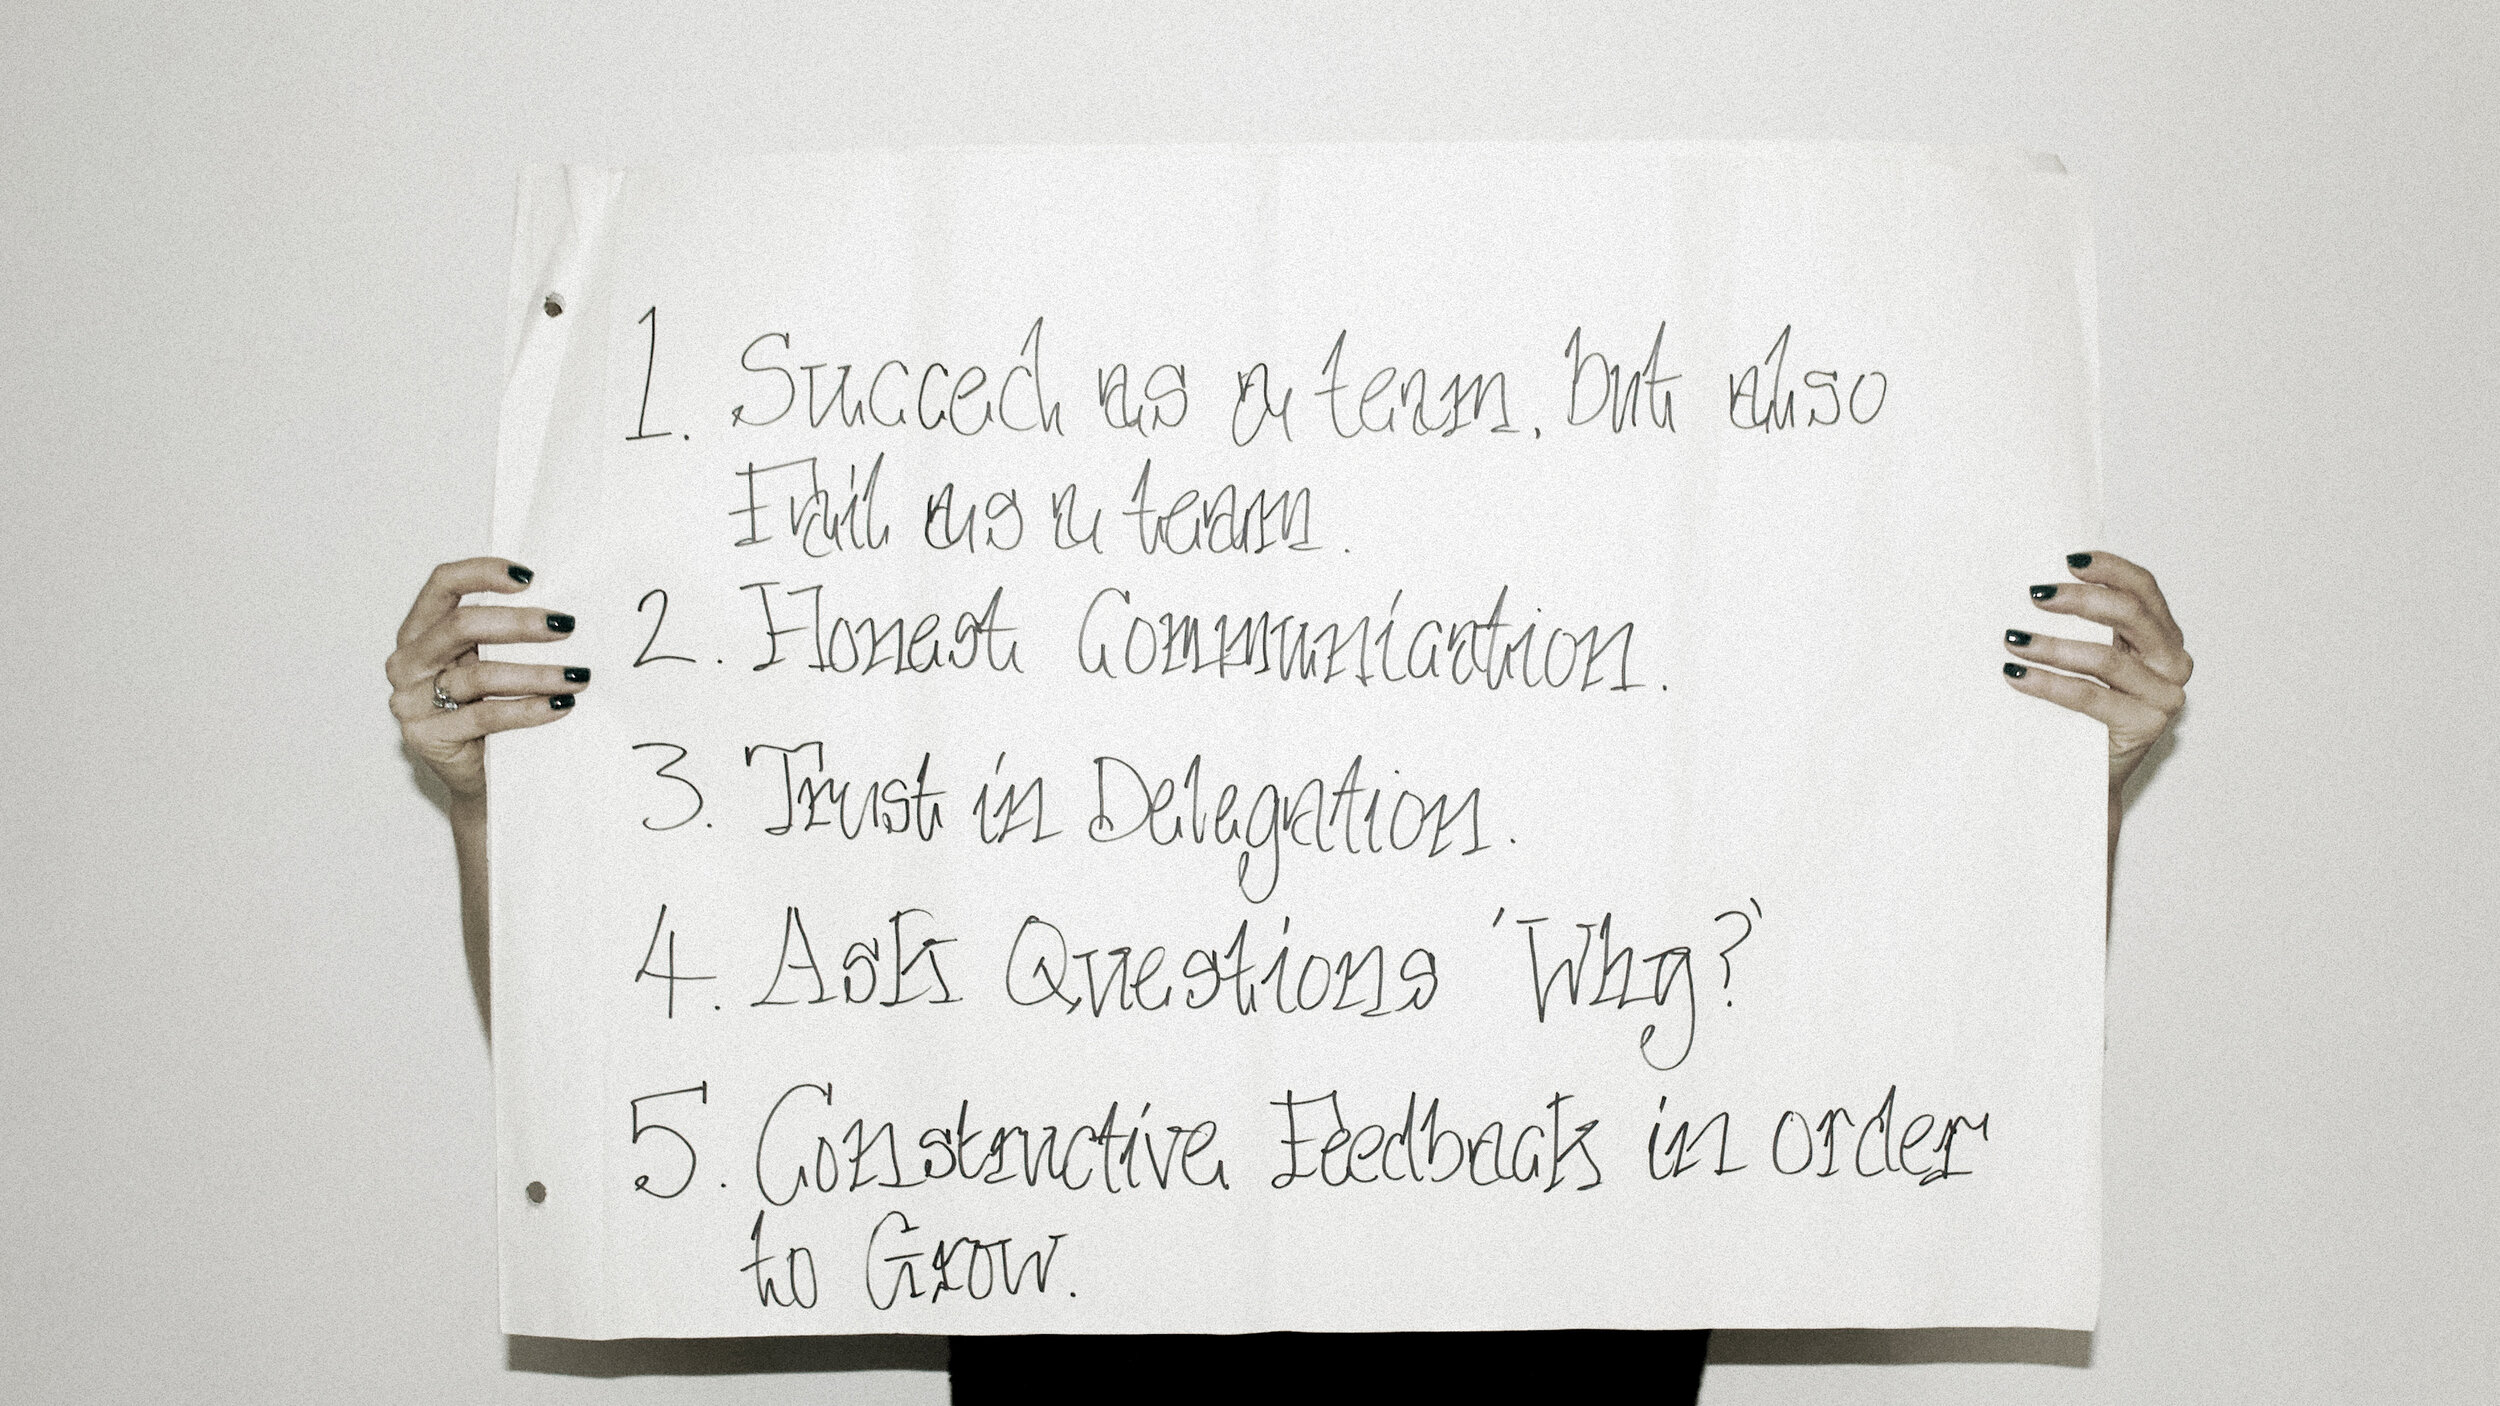 1. Succeed as a team, but also
Fail as a team.
2. Honest Communication.
3. Trust in Delegation.
4. Ask Questions 'Why?'
5. Constructive Feedback in order
to Grow.